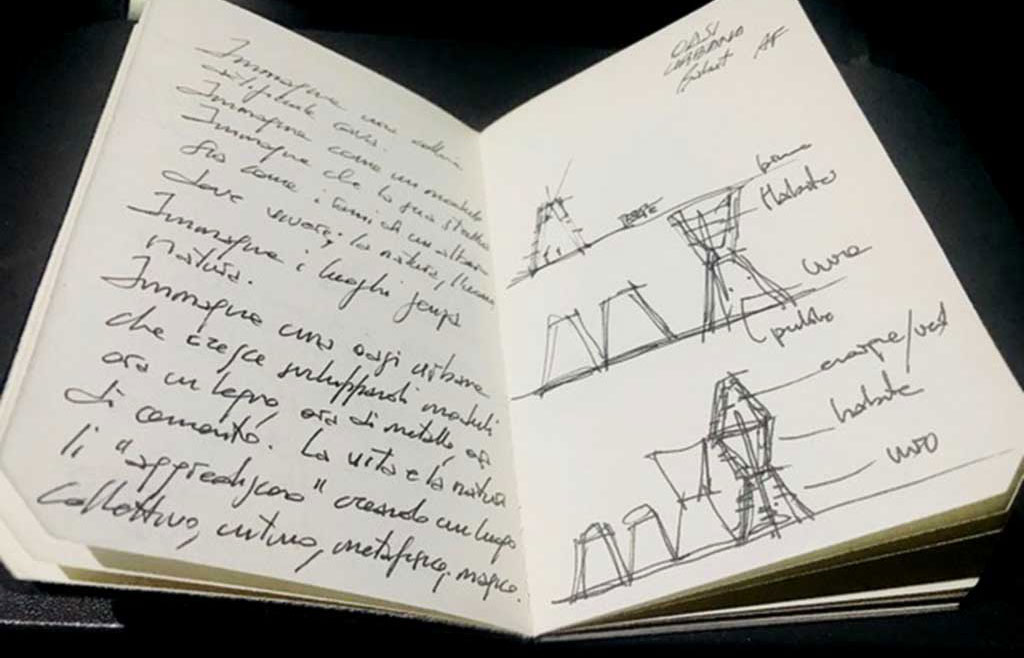 Immagina una collina
artificiale cava.
Immagina come un modulo
Immagina che la sua struttura
sia come i rami di un albero
dove vivere: la natura, l'uomo
Immagina i luoghi senza
natura.
Immagina una oasi urbana
che cresce sviluppando moduli
ora in legno, ora di metallo, ora
di cemento. La vita e la natura
li "aggrediscono" creando un luogo
collettivo, intimo, metafisico, magico.
OASI
URBANA
AF
Habitat
public
habitat